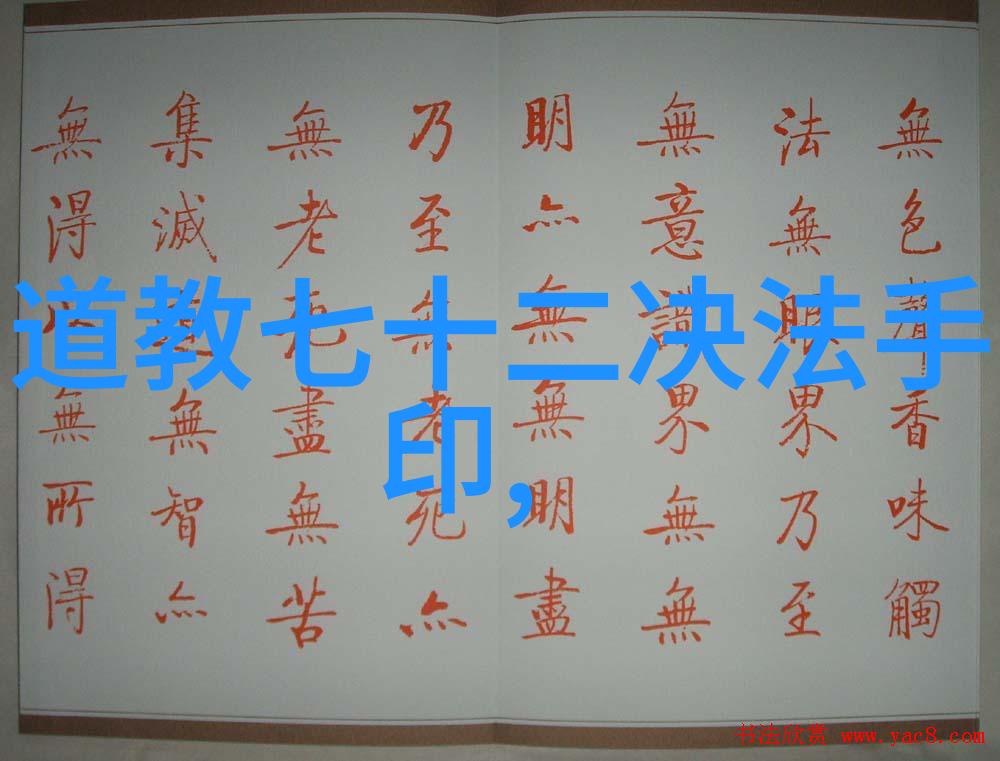 道教七十二决法手
印,
無色聲香味觸
法無眼界乃至
無意識界無無
明亦無無明盡
乃至無老死亦
無老死盡無苦
集滅無智亦
無得無所得
书法欣赏 www.yac8.com